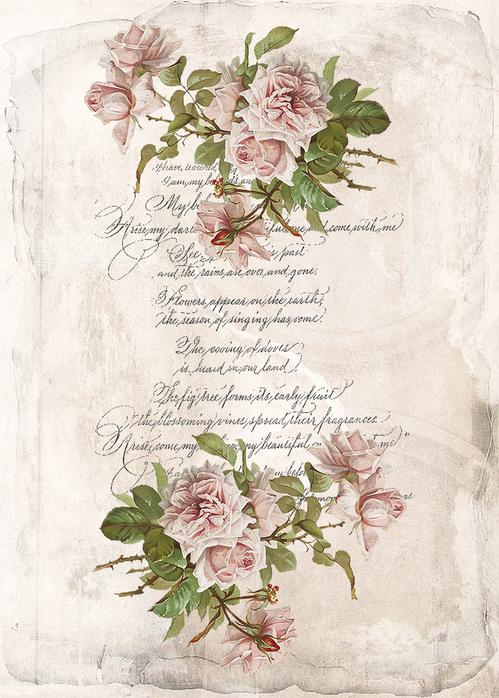 I have
I am my
My b
Arise, my dar come with me
See is past
and the rains are over and gone.
Flowers appear on the earth,
the season of singing has come.
The cooing of doves
is heard in our land.
The fig tree forms its early fruit
the blossoming vines spread their fragrance.
Arise, come, my my beautiful me"